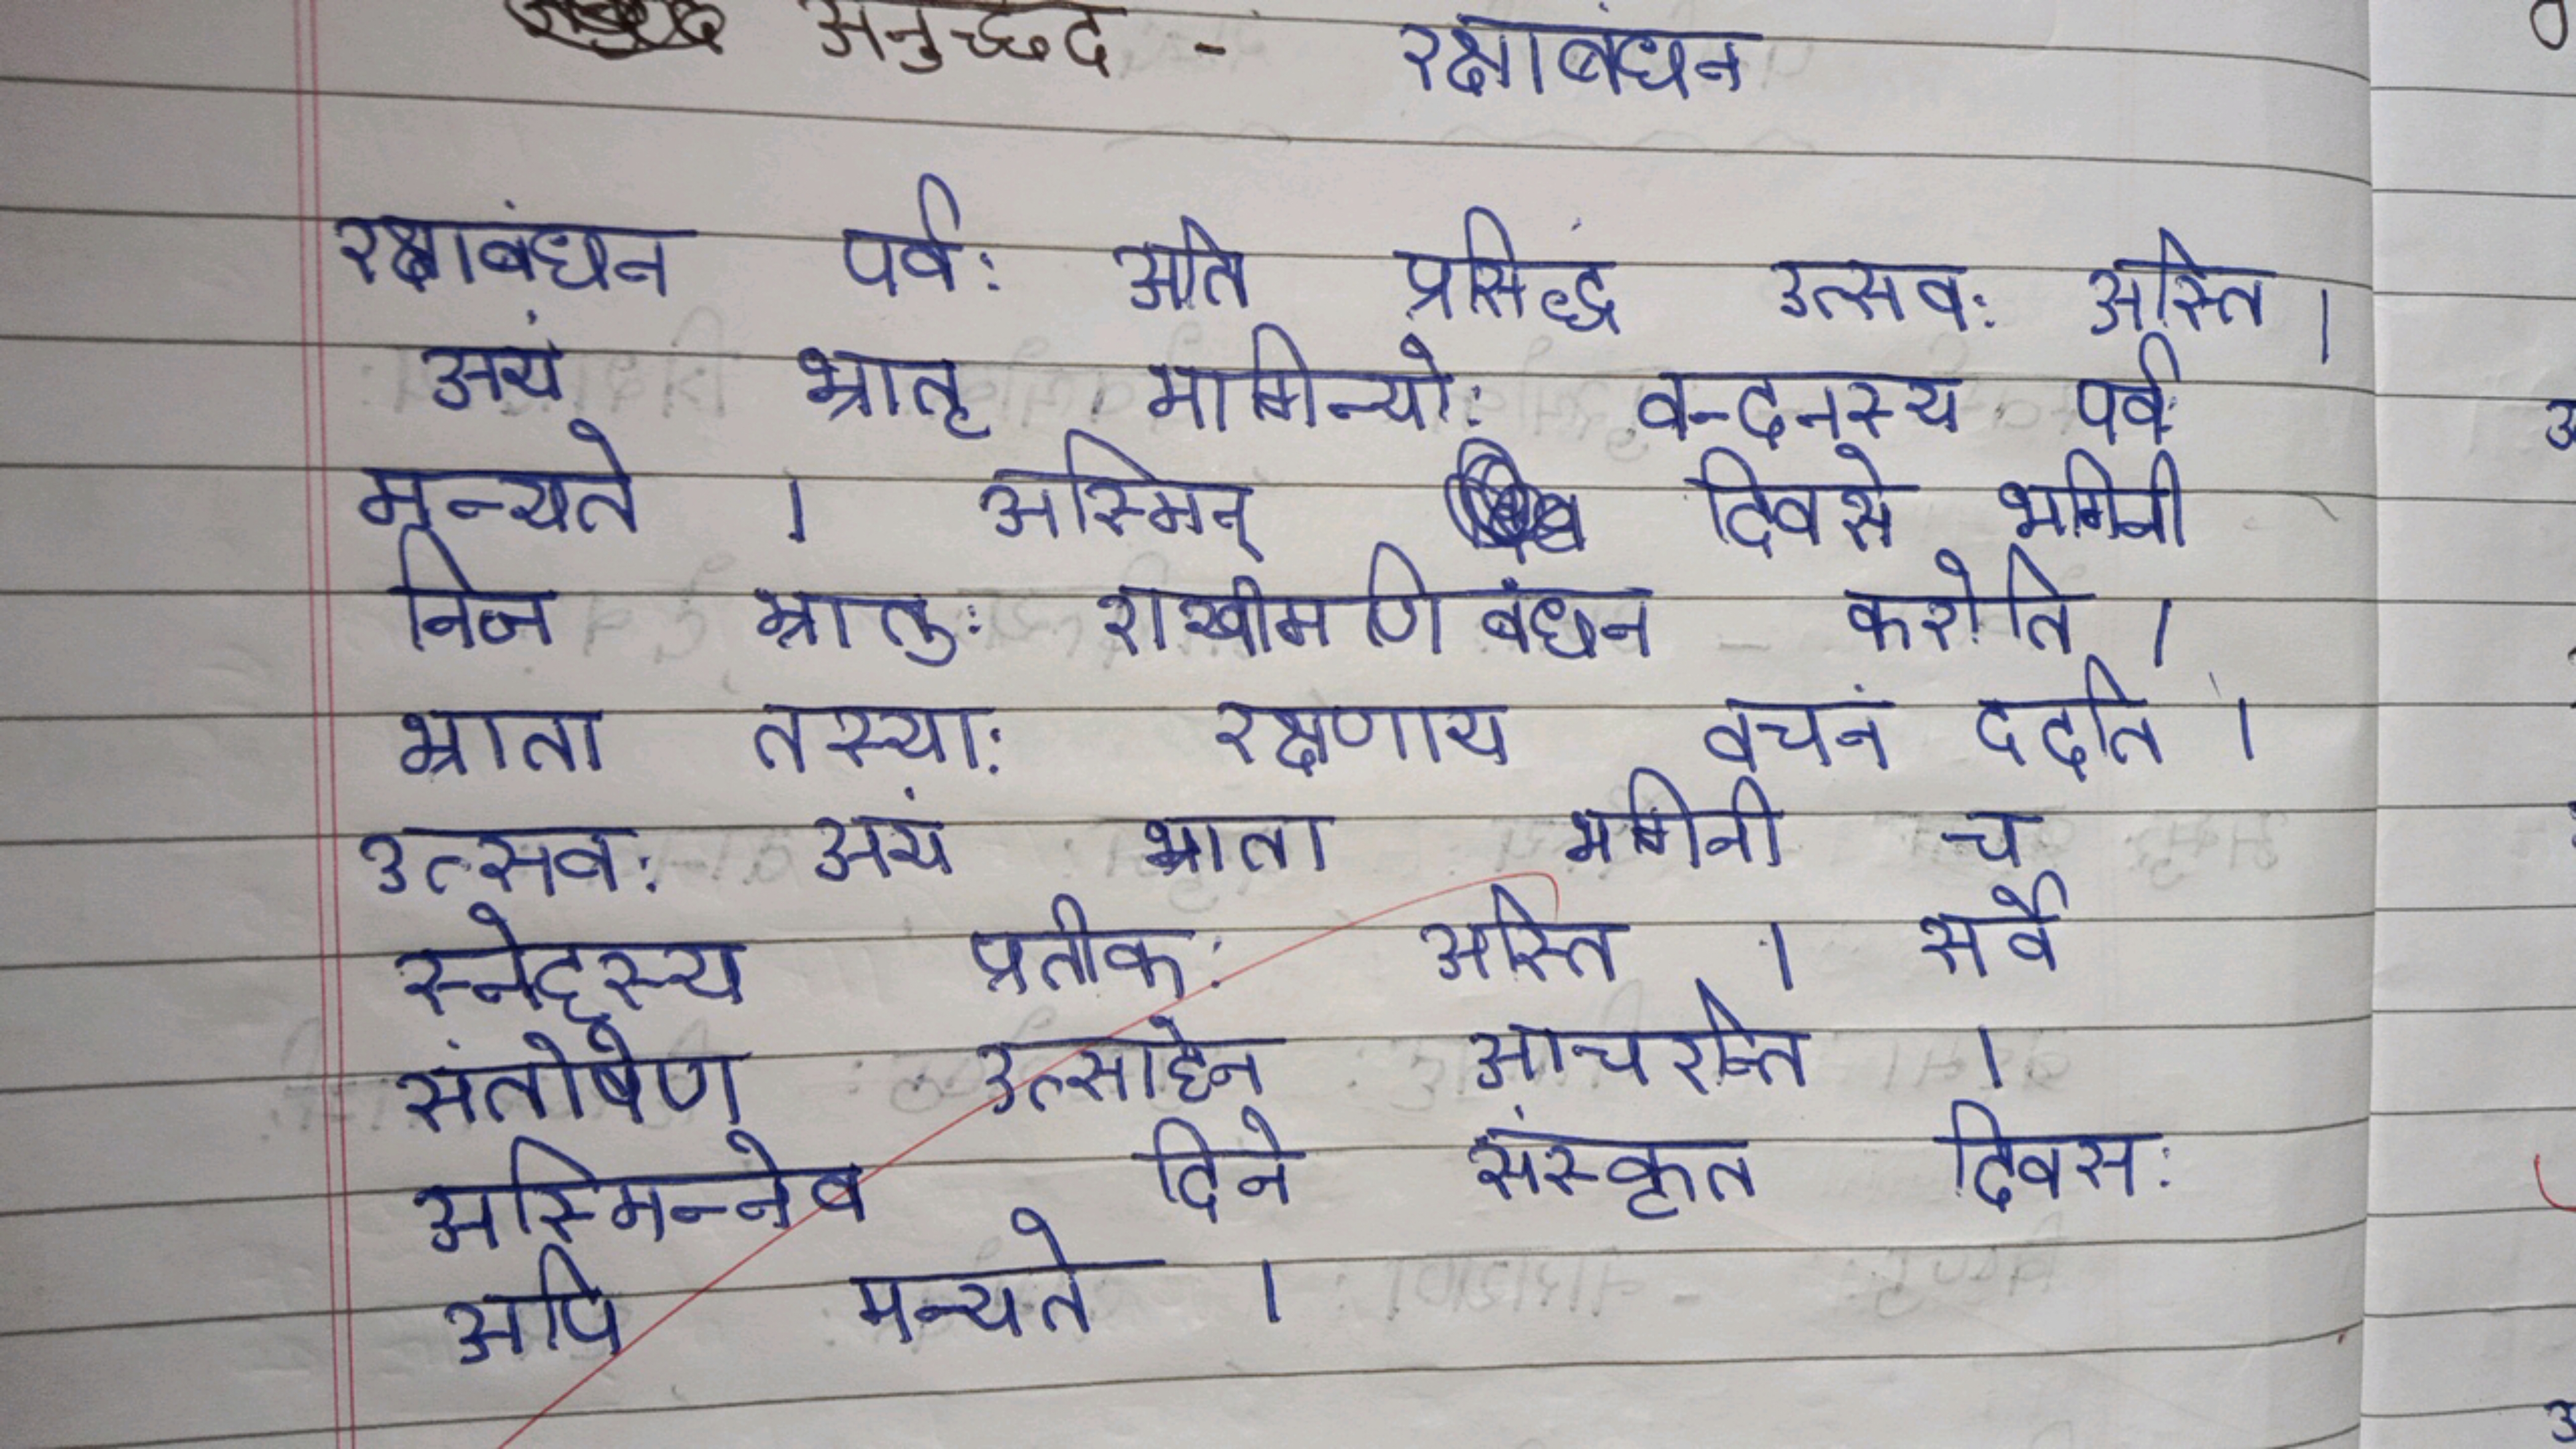 अनुच्छेद - रक्षाबंधन
रक्षाबंधन पर्व: अति प्रसिद्धं उत्सव: अस्ति ।
अयं भ्रातृ भागिन्यो: वन्दनस्य पर्व
मन्यते । अस्मिन् दिवसे भगिनी
निज भ्रातु: राखीमणिबंधन करोति ।
भ्राता तस्या: रक्षणाय वचनं ददाति ।
उत्सव: अयं भ्राता भगिनी च
स्नेहस्य प्रतीक: अस्ति । सर्वे
संतोषेण उत्साहेन आचरन्ति ।
अस्मिन्नेव दिने संस्कृत दिवस:
अपि मन्यते ।